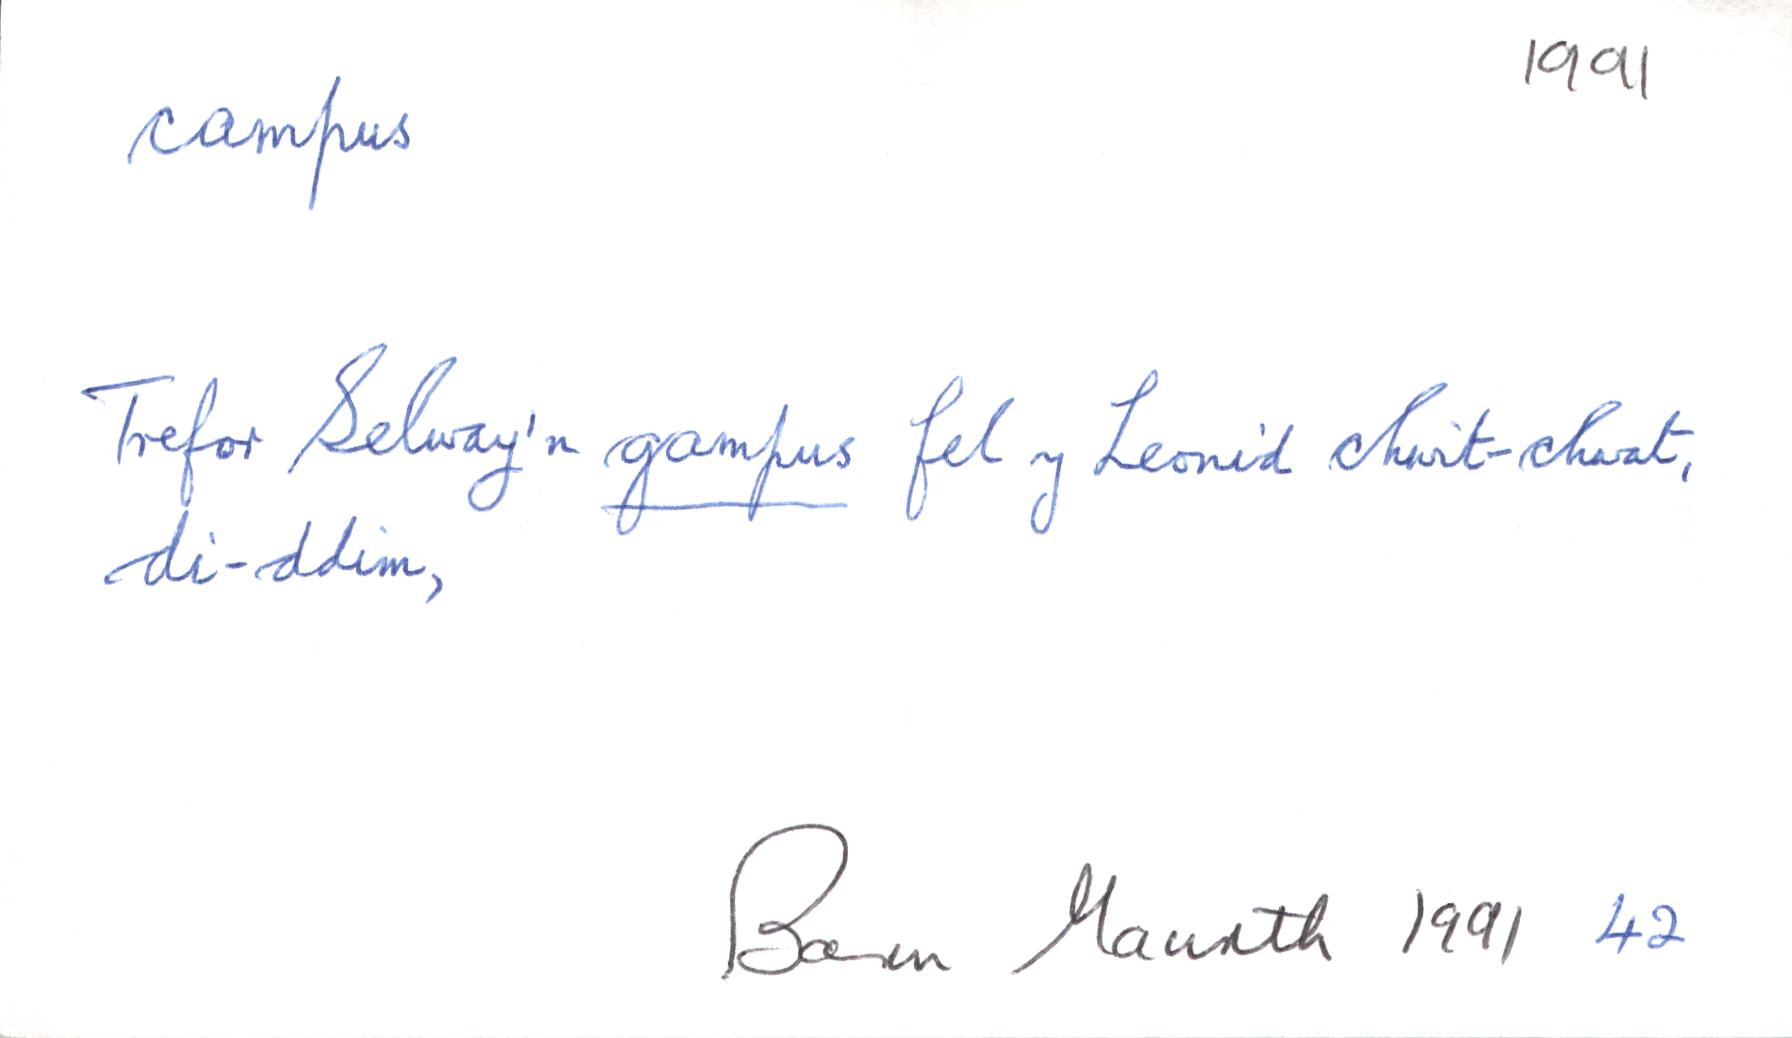 1991
campus
Trefor Selway'n gampus fel y Leonid chwit-chwat,
di-ddim,
Barn Mawrth 1991 42